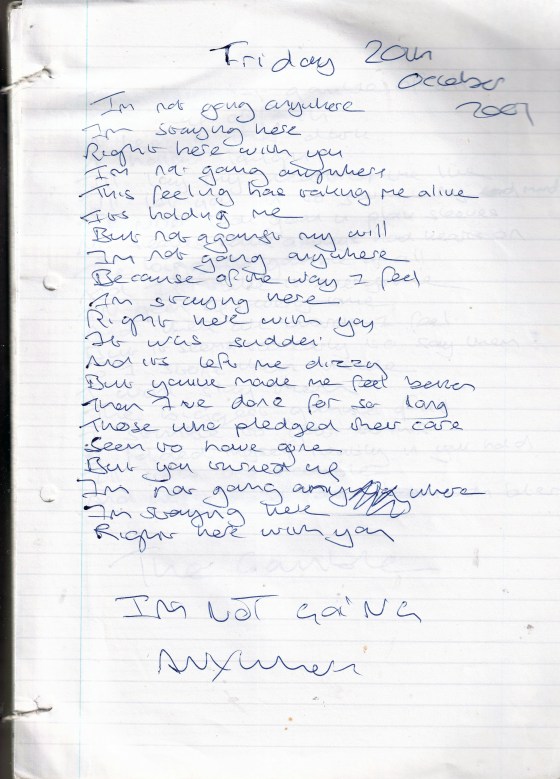 Friday 20th
October
2001
Im not going anywhere
Im staying here
Right here with you
I'm not going anywhere
This feeling has taking me alive
Its holding me
But not against my will
I'm not going anywhere
Because of the way I feel
Im staying here
Right here with you
It was sudden
And its left me dizzy
But youve made me feel better
Than I've done for so long
Those who pledged their care
Seem to have gone
But you turned up
Im not going any where
I'm staying here
Right here with you
IM NOT GOING
ANYWHERE